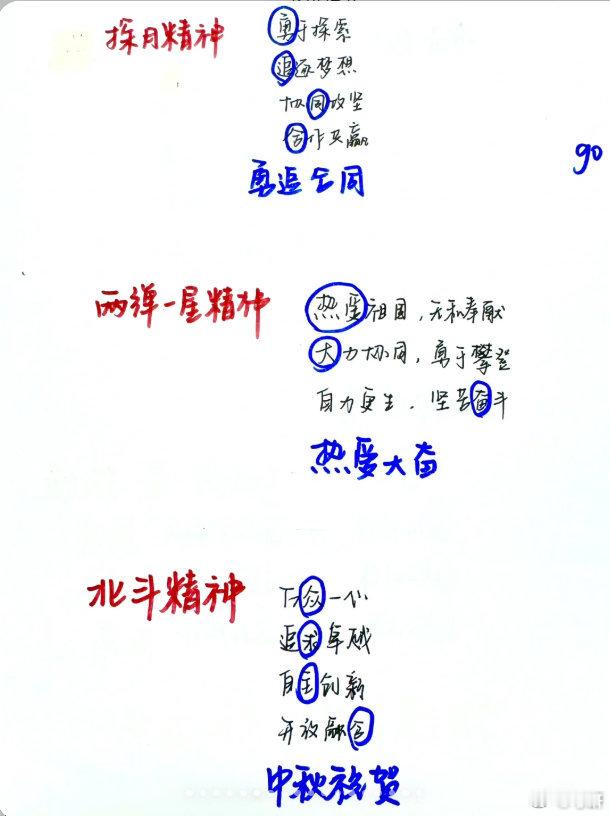 探月精神
勇于探索
追逐梦想
协同攻坚
合作共赢
勇追合同
90
两弹一星精神
热爱祖国，无私奉献
大力协同，勇于攀登
自力更生，坚苦奋斗
热爱大奋
北斗精神
万众一心
追求卓越
自主创新
开放融合
中秋祝贺